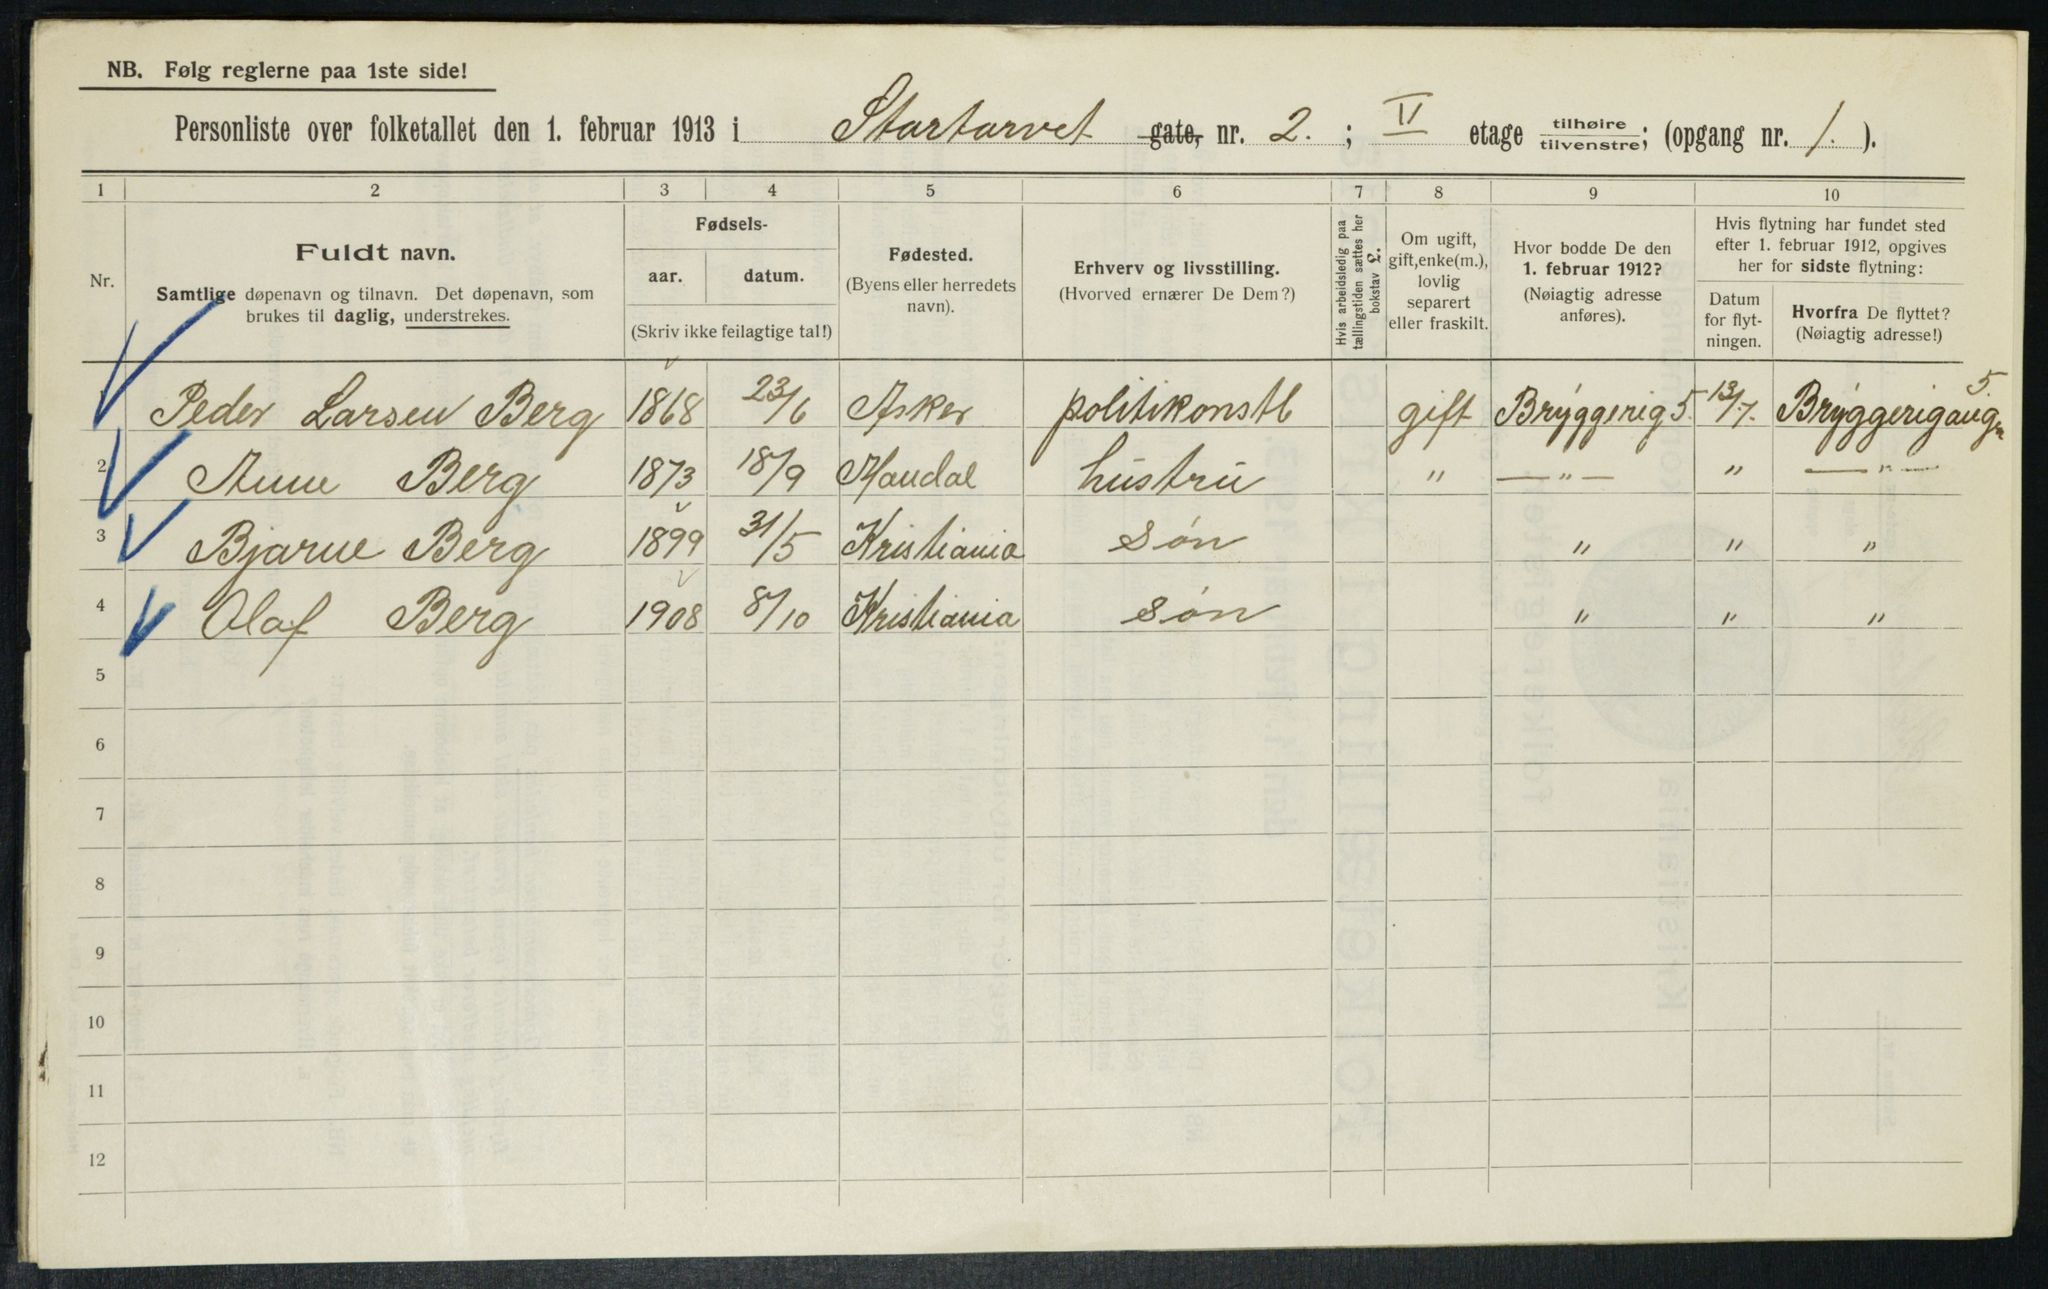 NB. Følg reglerne paa 1ste side!
Personliste over folketallet den 1. februar 1913 i Stortorvet gate, nr. 2. ; II etage tilhøire tilvenstre; (opgang nr. 1. ).
1 2 3 4 5 6 7 8 9 10
Nr.
Fuldt navn.
Samtlige døpenavn og tilnavn. Det døpenavn, som
brukes til daglig, understrekes.
Fødsels-
aar. datum.
(Skriv ikke feilagtige tal!)
Fødested.
(Byens eller herredets
navn).
Erhverv og livsstilling.
(Hvorved ernærer De Dem?)
Hvis arbeidsledig paa
tællingstiden sættes her
bokstav L.
Om ugift,
gift, enke(m.),
lovlig
separert
eller fraskilt.
Hvor bodde De den
1. februar 1912?
(Nøiagtig adresse
anføres).
Hvis flytning har fundet sted
efter 1. februar 1912, opgives
her for sidste flytning:
Datum
for flyt-
ningen.
Hvorfra De flyttet?
(Nøiagtig adresse!)
1 Peder Larsen Berg 1868 23/6 Asker politikonstb gift Bryggerig 5. 13/7. Bryggerigangen 5.
2 Anne Berg 1873 18/9 Mandal hustru " — " — " — " —
3 Bjarne Berg 1899 31/5 Kristiania søn " " "
4 Olaf Berg 1908 8/10 Kristiania søn " " "
5
6
7
8
9
10
11
12